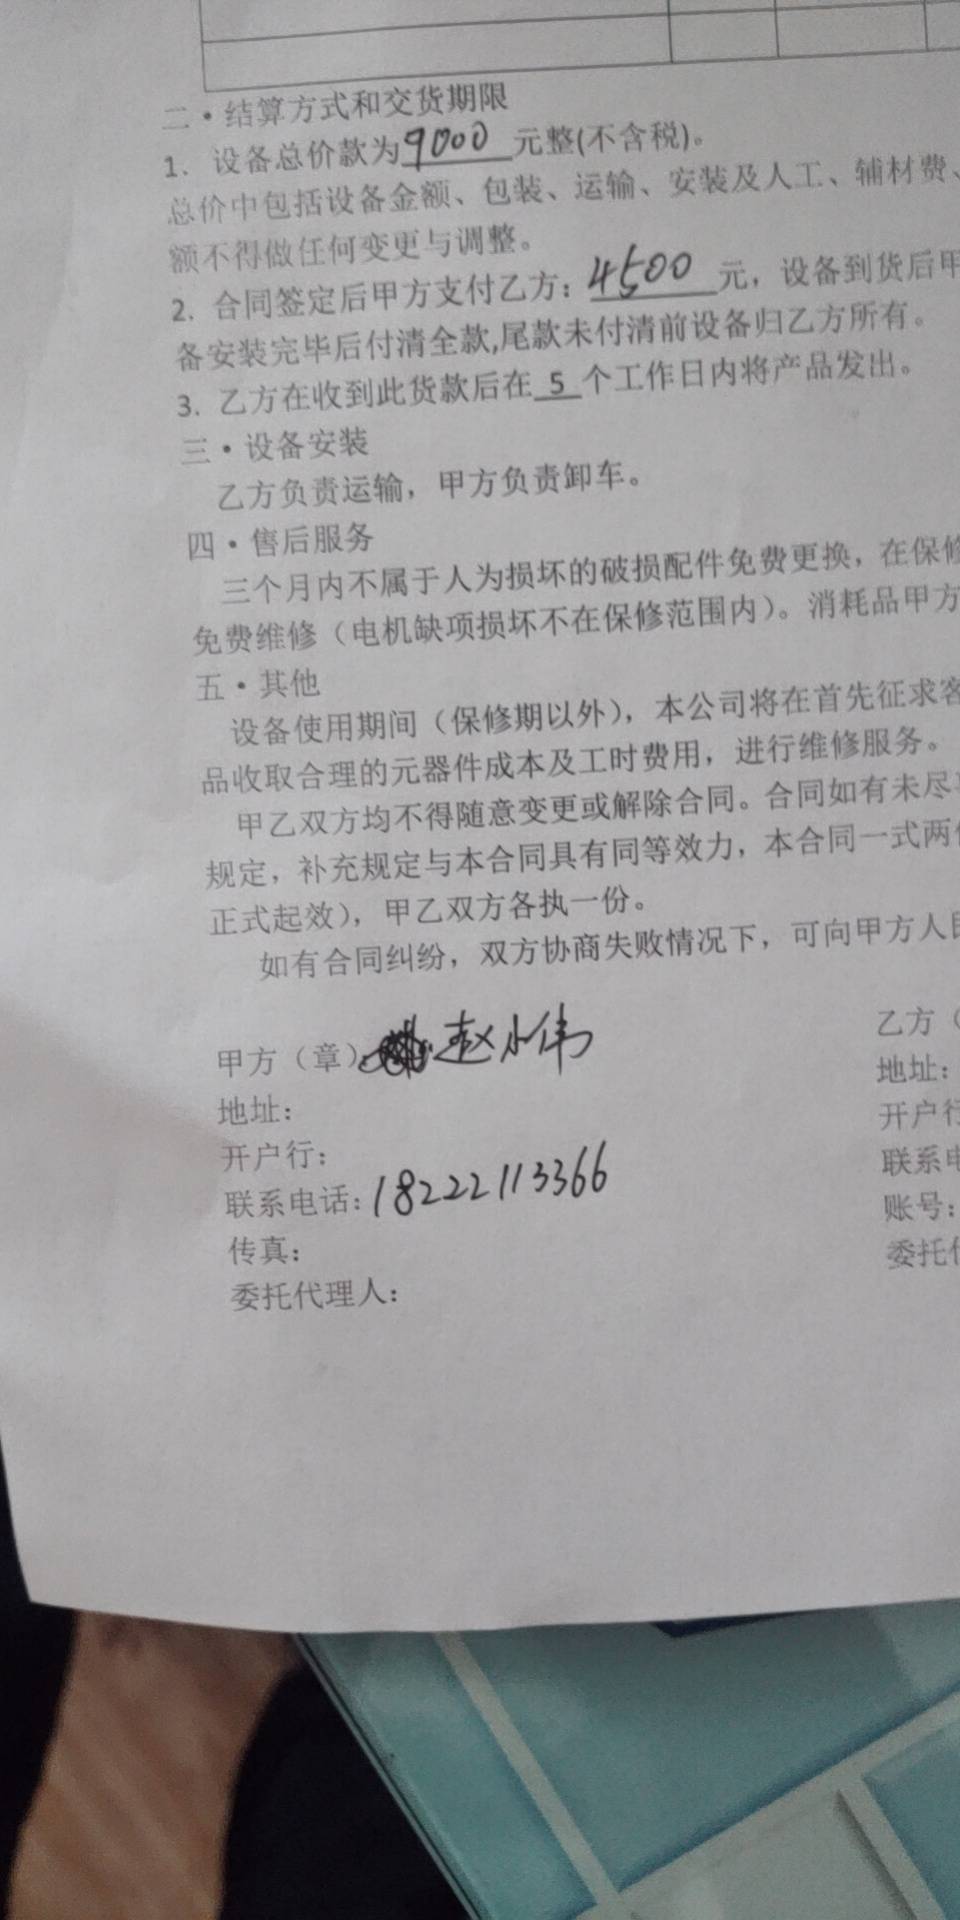 二·结算方式和交货期限
1. 设备总价款为9000元整(不含税)。
总价中包括设备金额、包装、运输、安装及人工、辅材费、
额不得做任何变更与调整。
2. 合同签定后甲方支付乙方：4500元，设备到货后甲
备安装完毕后付清全款,尾款未付清前设备归乙方所有。
3. 乙方在收到此货款后在5个工作日内将产品发出。
三·设备安装
乙方负责运输，甲方负责卸车。
四·售后服务
三个月内不属于人为损坏的破损配件免费更换，在保修
免费维修（电机缺项损坏不在保修范围内）。消耗品甲方
五·其他
设备使用期间（保修期以外），本公司将在首先征求客
品收取合理的元器件成本及工时费用，进行维修服务。
甲乙双方均不得随意变更或解除合同。合同如有未尽
规定，补充规定与本合同具有同等效力，本合同一式两
正式起效），甲乙双方各执一份。
如有合同纠纷，双方协商失败情况下，可向甲方人民
甲方（章）：赵小伟
地址：
开户行：
联系电话：18222113366
传真：
委托代理人：
乙方（
地址：
开户行
联系电
账号：
委托代